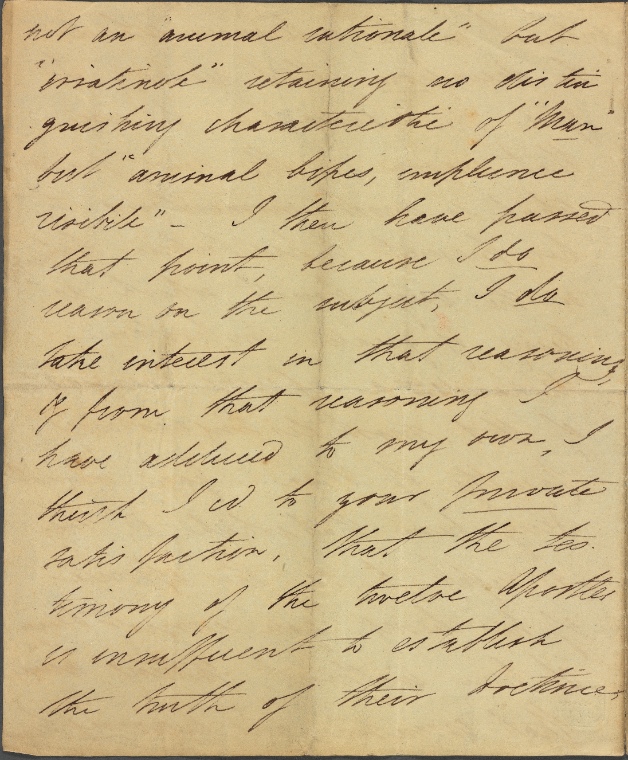 not an "animal rationale" but
"irrationale" retaining no distin
guishing characteristic of "Man"
but "animal bipes, implume
risibile" – I then have passed
that point, because I do
reason on the subject, I do
take interest in that reasoning,
& from that reasoning I
have adduced to my own, I
think I cd to your private
satisfaction, that the tes.
timony of the twelve Apostles
is insufficient to establish
the truth of their doctrine,